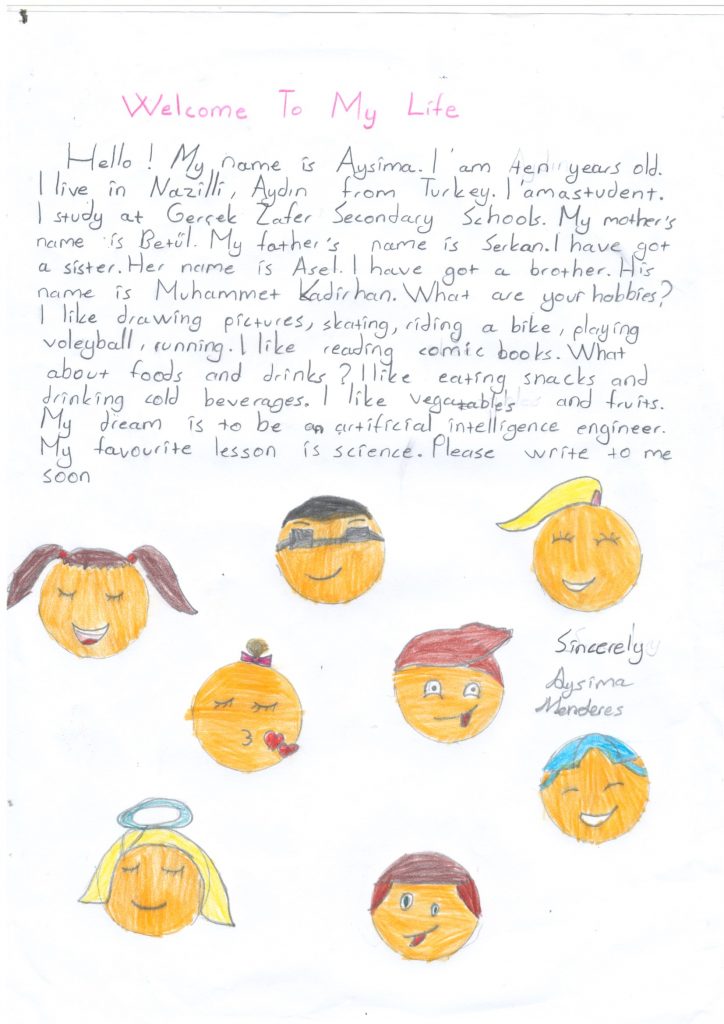 Welcome To My Life
Hello! My name is Aysima. I'am ten years old.
I live in Nazilli, Aydın from Turkey. I'amastudent.
I study at Gerçek Zafer Secondary Schools. My mother's
name is Betül. My father's name is Serkan. I have got
a sister. Her name is Asel. I have got a brother. His
name is Muhammet Kadirhan. What are your hobbies?
I like drawing pictures, skating, riding a bike, playing
voleyball, running. I like reading comic books. What
about foods and drinks? I like eating snacks and
drinking cold beverages. I like vegatables and fruits.
My dream is to be an artificial intelligence engineer.
My favourite lesson is science. Please write to me
soon
Sincerely
Aysima
Menderes